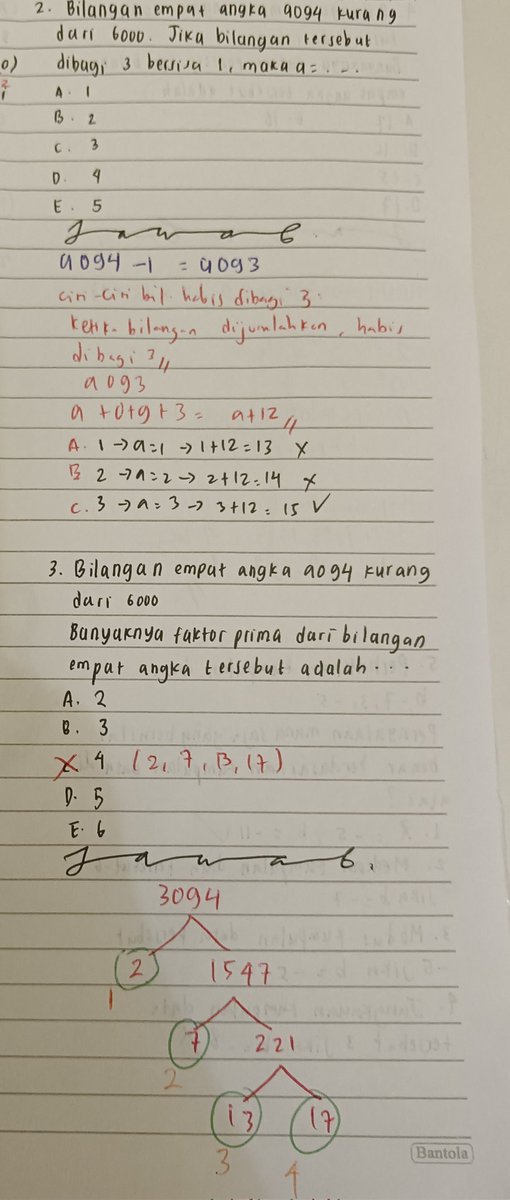 2. Bilangan empat angka a094 kurang
dari 6000. Jika bilangan tersebut
dibagi 3 bersisa 1, maka a = ....
A. 1
B. 2
C. 3
D. 4
E. 5
Jawab.
a094 - 1 = a093
ciri-ciri bil. habis dibagi 3:
ketika bilangan dijumlahkan, habis
dibagi 3//
a093
a + 0 + 9 + 3 = a+12//
A. 1 → a=1 → 1+12=13 ×
B 2 → a=2 → 2+12=14 ×
C. 3 → a=3 → 3+12=15 ✓
3. Bilangan empat angka a094 kurang
dari 6000
Banyaknya faktor prima dari bilangan
empat angka tersebut adalah ...
A. 2
B. 3
C. 4 (2, 7, 13, 17)
D. 5
E. 6
Jawab.
3094
2 1547
1
7 221
2
13 17
3 4
Bantola